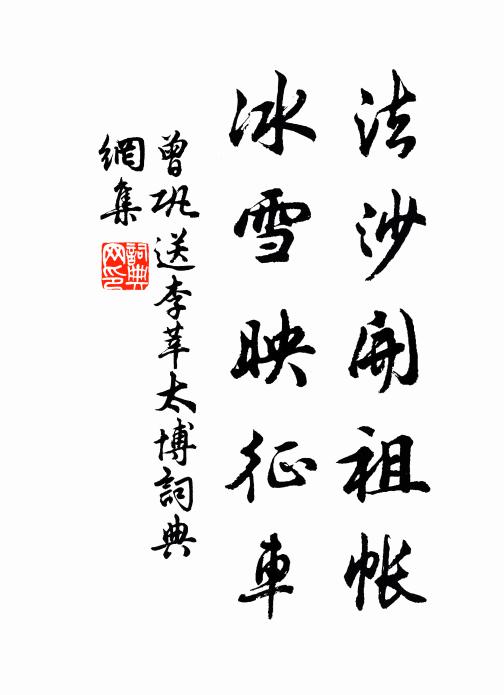 法沙開祖帳
冰雪映征車
曾巩送李莘太博詞典
網集
詞典网印